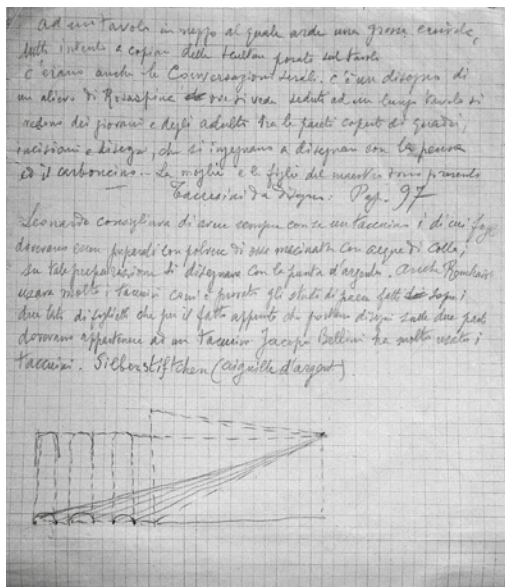 ad un tavolo in mezzo al quale arde una grossa candela,
tutti intenti a copiare delle sculture posate sul tavolo
c'erano anche le Conversazioni serali. c'è un disegno di
un allievo di Rosaspina ove si vede seduti ad un lungo tavolo si
vedono dei giovani e degli adulti tra le pareti coperte di quadri,
incisioni e disegni, che si ingegnano a disegnare con la penna
ed il carboncino. La moglie e le figlie del maestro sono presenti
Taccuini da disegno. Pag. 97
Leonardo consigliava di avere sempre con se un taccuino i di cui fogli
dovevano essere preparati con polvere di osse macinate con acqua di colla;
su tale preparazione si disegnava con la punta d'argento. anche
usava molto i taccuini come è provato gli studi di fatti
due lati di foglietti che per il fatto appunto che portano disegni sulle due parti
dovevano appartenere ad un taccuino Jacopo Bellini ha molto usato i
taccuini. Silberstiftchen (aiguille d'argent)